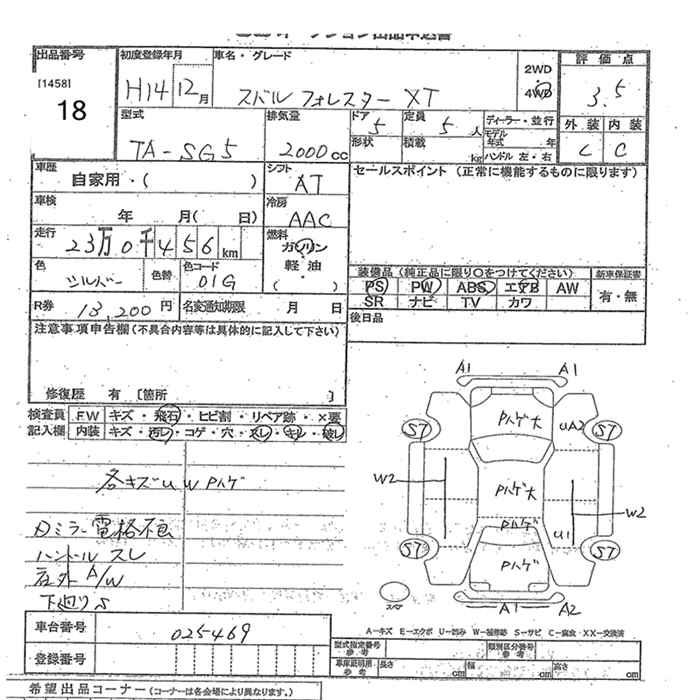 出品番号
[1458]
18
初度登録年月
H14 12月
車名・グレード
スバル フォレスター XT
2WD
4WD
評価点
3.5
外装 内装
C C
型式
TA-SG5
排気量
2000cc
ドア 5
定員 5人
形状
積載 kg
ディーラー・並行
モデル年式 年
ハンドル 左・右
車歴
自家用・( )
シフト
AT
セールスポイント (正常に機能するものに限ります)
車検
年 月( 日)
冷房
AAC
走行
23万0千456km
燃料
ガソリン
軽・油
( )
色
シルバー
色替
色コード
01G
装備品 (純正品に限り○をつけてください)
新車保証書
PS PW ABS エアB AW
有・無
SR ナビ TV カワ
R券 13,200円
名変通知期限 月 日
後日品
注意事項申告欄(不具合内容等は具体的に記入して下さい)
修復歴 有 [箇所 ]
検査員
記入欄
FW キズ・飛石・ヒビ割・リペア跡・×要
内装 キズ・汚レ・コゲ・穴・スレ・キレ・破レ
各キズUWPハゲ
Dミラー電格不良
ハンドルスレ
社外A/W
下廻りS
A1 A1
S7 S7
UA2
Pハゲ大
W2
Pハゲ大
W2
Pハゲ
U1
S7 S7
Pハゲ
A1 A2
スペア
A-キズ E-エクボ U-凹み W-補修跡 S-サビ C-腐食 XX-交換済
車台番号
025469
登録番号
型式指定番号
参考
類別区分番号
参考
車庫証明用
参考
長さ cm 幅 cm 高さ cm
希望出品コーナー(コーナーは各会場により異なります。)